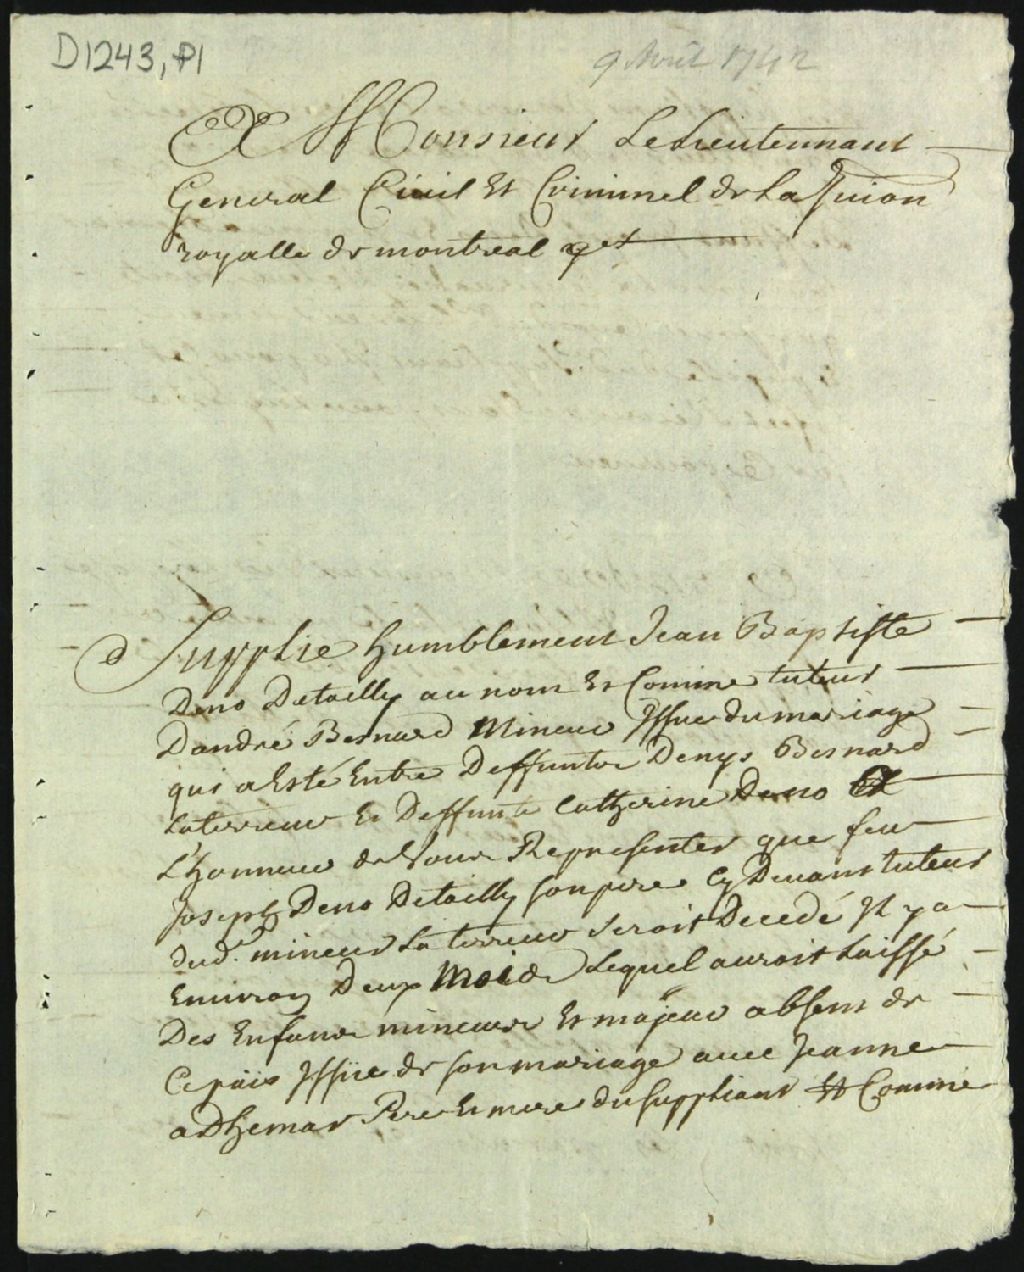 D1243, P1
9 Avril 1742
A Monsieur Le Lieutennant
General Civil Et Criminel de La
royalle de montreal
Supplie humblement Jean Baptiste
Deno Detailly au nom Et Comme tuteur
Dandré Besnard Mineur Issue du mariage
qui a Esté Entre Deffuntz Denys Besnard
Laterreur Et Deffunte Catherine Deno
L'honneur de Vous Representer que feu
Joseph Deno Detailly son pere Cy Devant tuteur
dud. mineur La terreur seroit Decedé Il y a
Environ Deux Mois Lequel auroit Laissé
Des Enfans mineurs Et majeur absens de
Ce païs Issüe de son mariage avec Jeanne
adhemar Pere Et mere du suppliant Et Comme